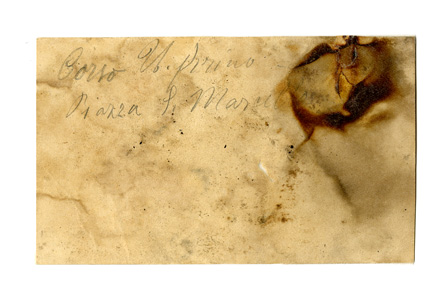 Corso U. Primo
Piazza S. Marco